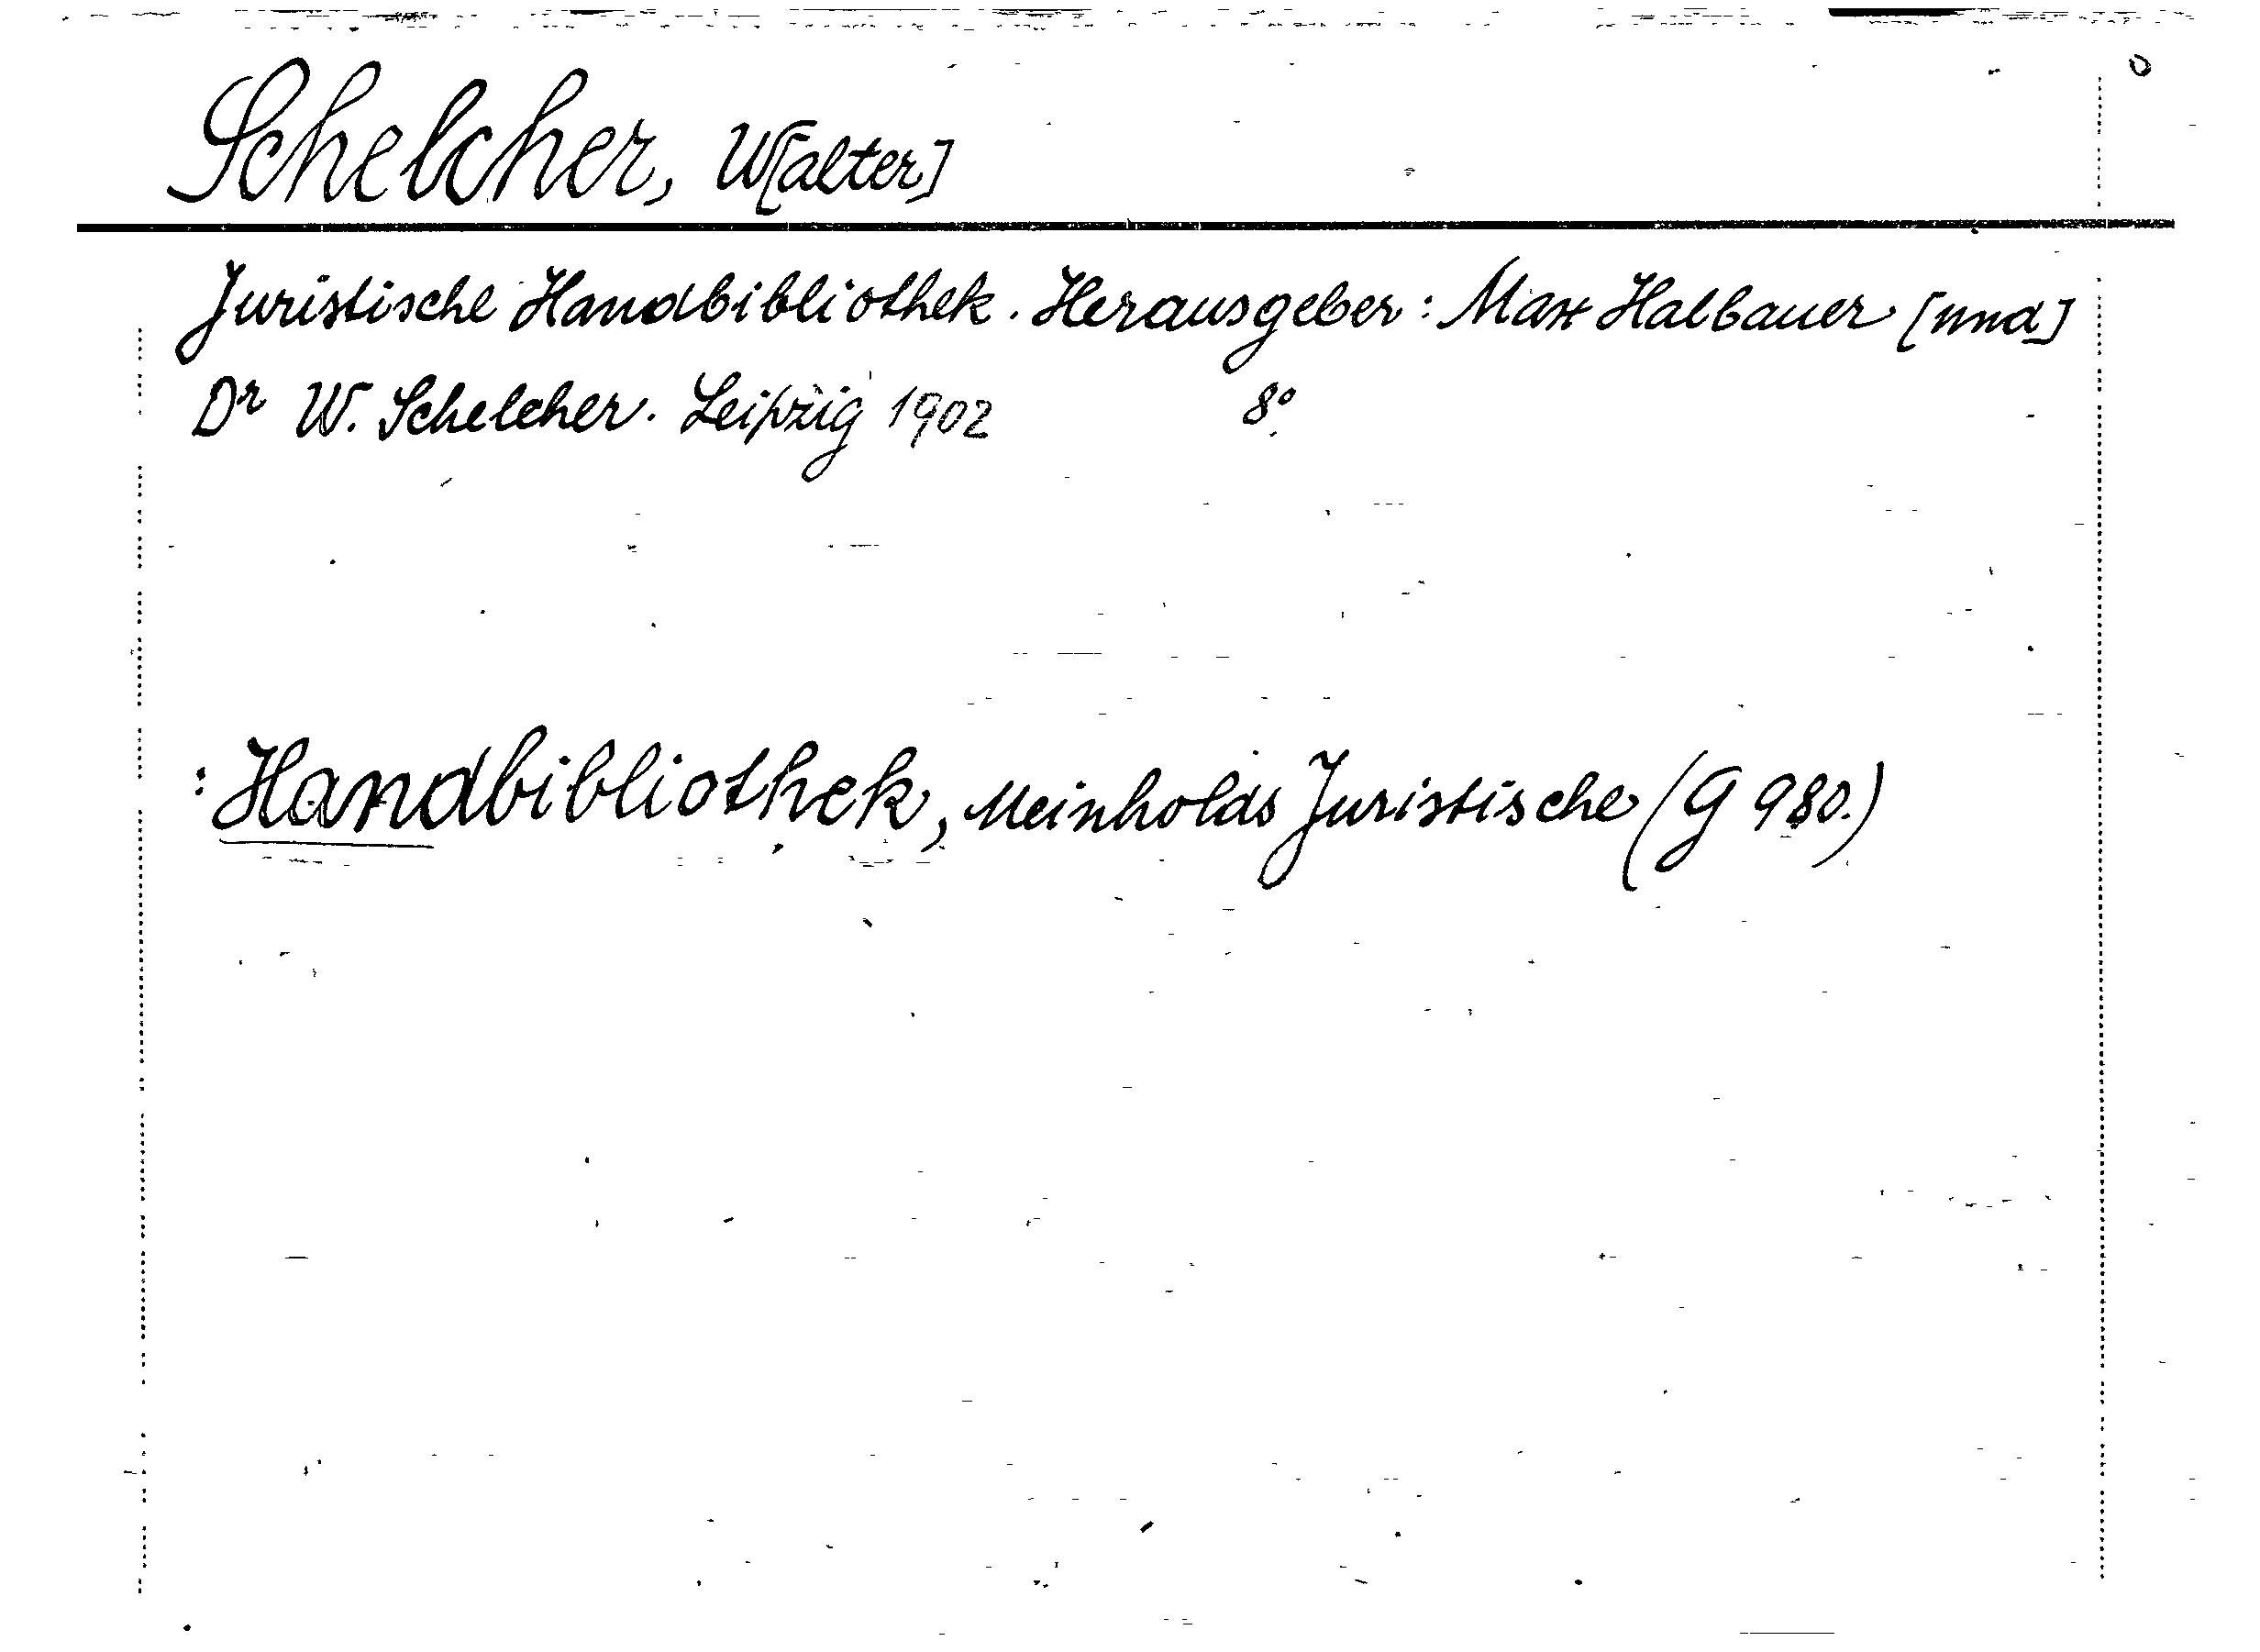 Schelcher, W[alter]
Juristische Handbibliothek. Herausgeber: Max Halbauer [und]
Dr W. Schelcher. Leipzig 1902 8°.
: Handbibliothek, Meinholds Juristische (G 980.)